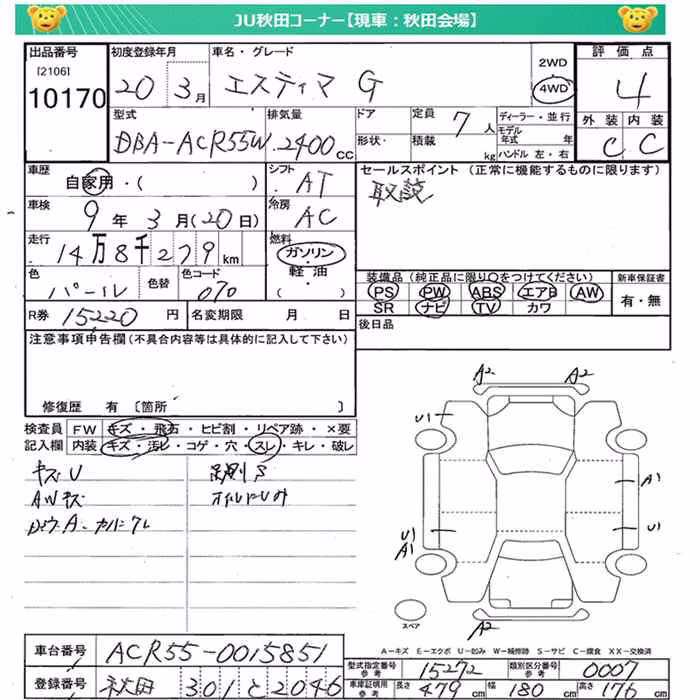 JU秋田コーナー【現車：秋田会場】
出品番号 初度登録年月 車名・グレード 評価点
[2106] 10170 20 3月 エスティマ G 2WD 4WD 4
型式 排気量 ドア 定員 ディーラー・並行 外装 内装
DBA-ACR55W 2400cc 形状 積載 7人 kg モデル年式 年 ハンドル 左・右 C C
車歴 自家用・( ) シフト AT セールスポイント (正常に機能するものに限ります)
取説
車検 9年3月(20日) 冷房 AC
走行 14万8千279km 燃料 ガソリン・軽油・( )
色 パール 色替 色コード 070
装備品(純正品に限り○をつけてください) 新車保証書
PS PW ABS エアB AW 有・無
SR ナビ TV カワ
R券 15220円 名変期限 月 日 後日品
注意事項申告欄(不具合内容等は具体的に記入して下さい)
修復歴 有 〔箇所 〕
検査員 FW キズ・飛石・ヒビ割・リペア跡・×要
記入欄 内装 キズ・汚レ・コゲ・穴・スレ・キレ・破レ
キズU
AWキズ
A2 A2
U1
A1
U1
U1
A1
A2
スペア
A－キズ E－エクボ U－凹み W－補修跡 S－サビ C－腐食 XX－交換済
車台番号 ACR55-0015851
型式指定番号 参考 15272 類別区分番号 参考 0007
登録番号 秋田 301 と 2046
車庫証明用 参考 長さ 479cm 幅 180cm 高さ 176cm